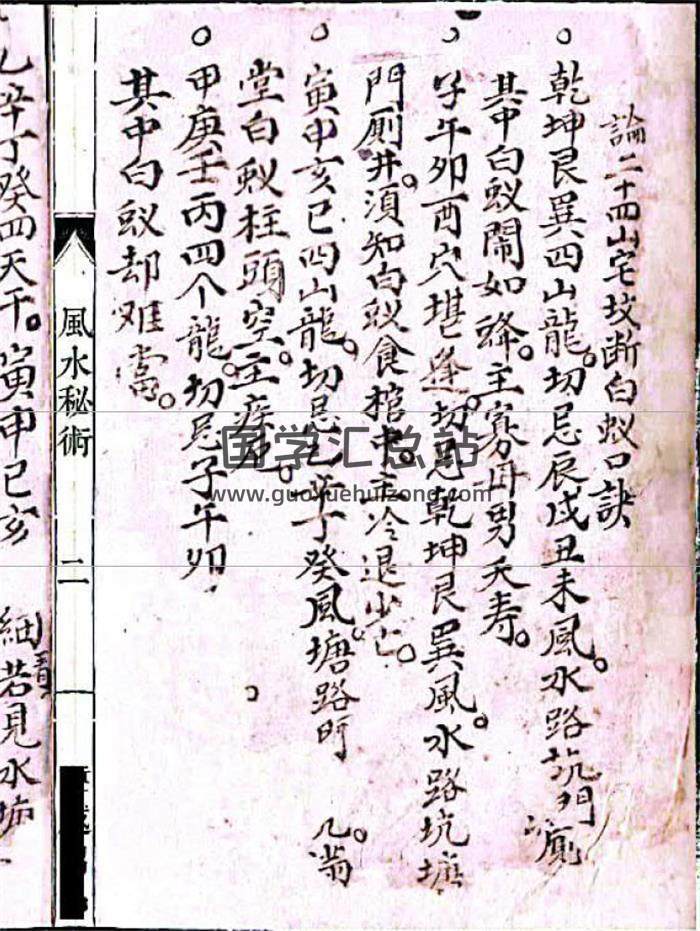 論二十四山宅坟断白蚁口訣
乾坤艮巽四山龍。切忌辰戌丑未風。水路坑門廁
其中白蚁鬧如蜂。主寡母男夭寿。
子午卯酉穴堪逢。切忌乾坤艮巽風。水路坑塘
門厠井。須知白蚁食棺中。主冷退少亡。
寅申亥巳四山龍。切忌乙辛丁癸風塘路
堂白蚁柱頭空。主
甲庚壬丙四个龍。切忌子午卯
其中白蚁却难當。
風水秘術
二
乙辛丁癸四天干。寅申巳亥
細若見水
国学汇总站
www.guoxuehuizong.com